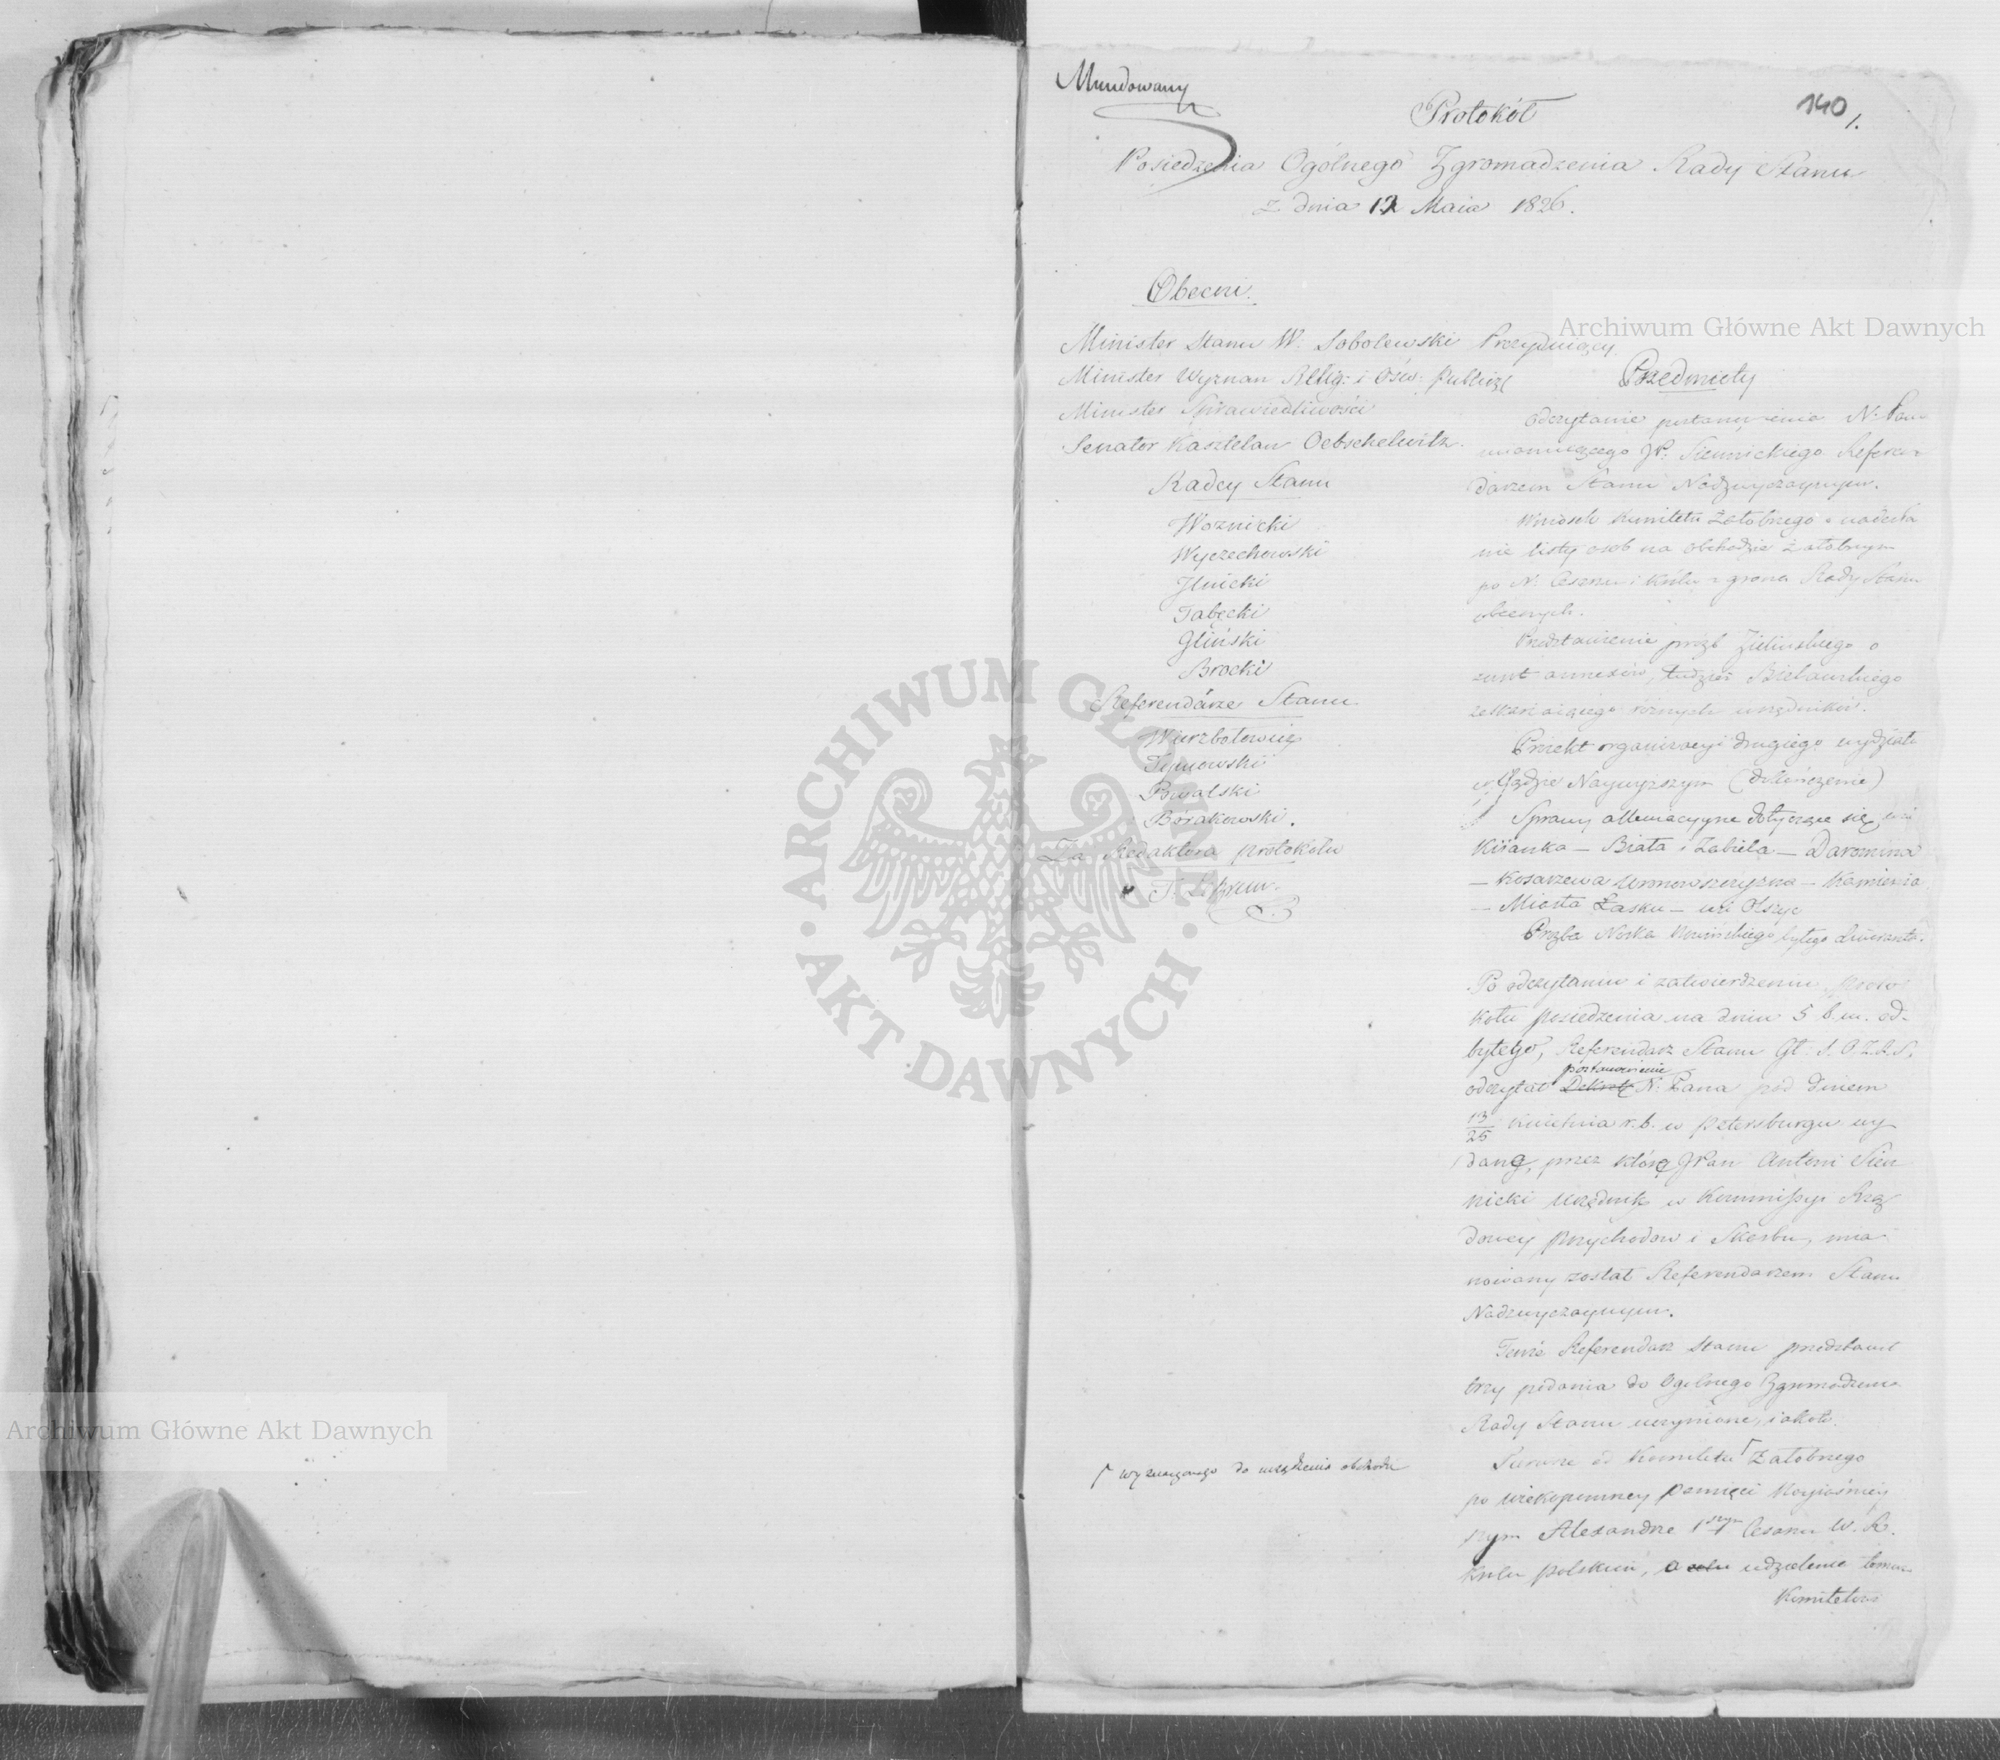 Mundowany
140
1.
Protokół
Posiedzenia Ogólnego Zgromadzenia Rady Stanu
z dnia 12 Maia 1826.
Obecni.
Minister Stanu W. Sobolewski Prezyduiący.
Minister Wyznan Relig: i Ośw: Publicz
Minister Sprawiedliwości
Senator Kasztelan Oebschelwitz.
Radcy Stanu
Woznicki
Wyczechowski
Ilnicki
Tabęcki
Gliński
Brocki
Referendarze Stanu
Wierzbołowicz
Tymowski
Powalski
Borakowski.
Za Redaktora protokółu
Przedmioty
Odczytanie postanowienia N. Pana
mianuiącego JP. Siennickiego Referen
darzem Stanu Nadzwyczaynym.
Wniosek Komitetu Żałobnego o nadesła
nie listy osob na obchodzie żałobnym
po N. Cesarzu i Królu z grona Rady Stanu
obecnych.
Przedstawienie prośb Zielinskiego o
zwrot annexów, tudzież
zaskarżaiącego różnych urzędników.
Proiekt organizacyi drugiego wydziału
w Sądzie Naywyższym (dokończenie)
Sprawy alleniacyyne dotyczące się wsi
Kiianka — Biała i Zabiela — Daromina
— Kosarzewa — Kamienia
— Miasta Łasku — wsi Olszyc
Prośba Noska Nowińskiego byłego liweranta.
Po odczytaniu i zatwierdzeniu proto
kołu posiedzenia na dniu 5 b.m. od-
bytego, Referendarz Stanu Gł. S. O.Z.R.S.
postanowienie
odczytał Dekret N: Pana pod dniem
13/25 Kwietnia r.b. w Petersburgu wy
dane, przez które JPan Antoni Sien
nicki Urzędnik w Kommissyi Rzą
dowey Przychodow i Skarbu, mia
nowany został Referendarzem Stanu
Nadzwyczaynym.
Tenże Referendarz Stanu przedstawił
trzy podania do Ogólnego Zgromadzenia
Rady Stanu uczynione, iakoto.
Pierwsze od Komitetu Γ Żałobnego
Γ wyznaczonego do urządzenia obchodu
po wiekopomney pamięci Nayiaśniey
szym Alexandrze 1szym Cesarzu W. R.
Królu Polskim, o celu udzielenie temuż
Komitetowi
Archiwum Główne Akt Dawnych
Archiwum Główne Akt Dawnych
ARCHIWUM GŁÓWNE · AKT DAWNYCH ·